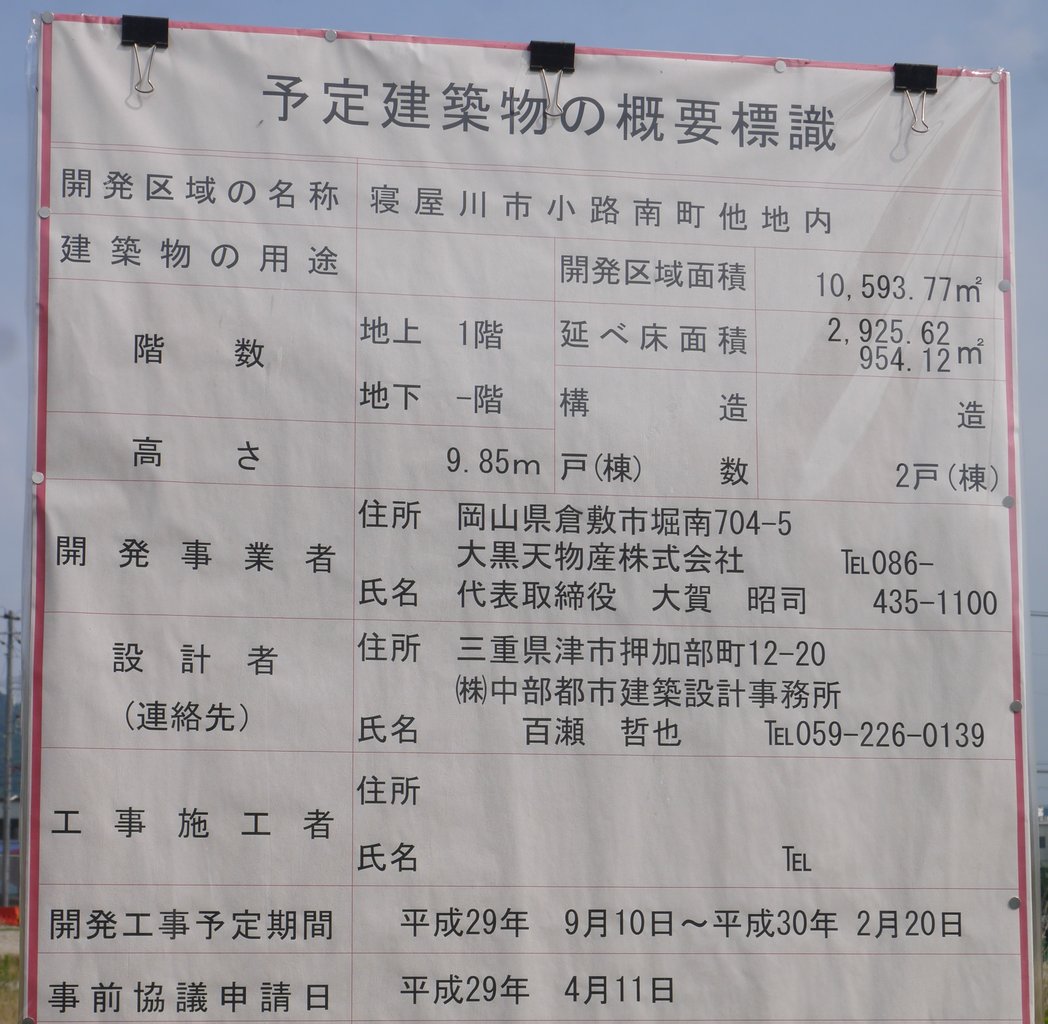 予定建築物の概要標識
開発区域の名称 寝屋川市小路南町他地内
建築物の用途 開発区域面積 10,593.77㎡
階数 地上 1階 延べ床面積 2,925.62
954.12㎡
地下 -階 構造 造
高さ 9.85m 戸(棟)数 2戸(棟)
開発事業者 住所 岡山県倉敷市堀南704-5
大黒天物産株式会社 ℡086-
氏名 代表取締役 大賀 昭司 435-1100
設計者 住所 三重県津市押加部町12-20
㈱中部都市建築設計事務所
(連絡先) 氏名 百瀬 哲也 ℡059-226-0139
工事施工者 住所
氏名 ℡
開発工事予定期間 平成29年 9月10日～平成30年 2月20日
事前協議申請日 平成29年 4月11日